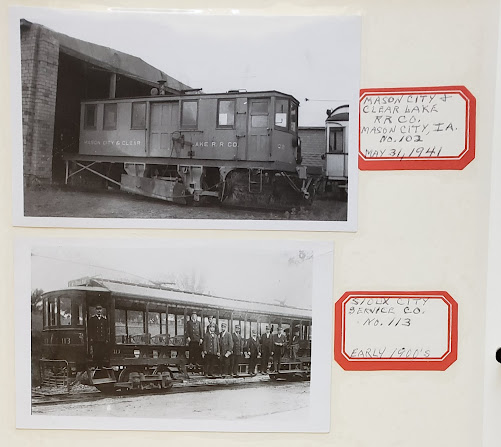 MASON CITY & CLEAR
LAKE R.R. CO.
MASON CITY &
CLEAR LAKE
RR CO.
MASON CITY, IA.
NO. 102
MAY 31, 1941
113
SIOUX CITY
SERVICE CO.
NO. 113
EARLY 1900'S